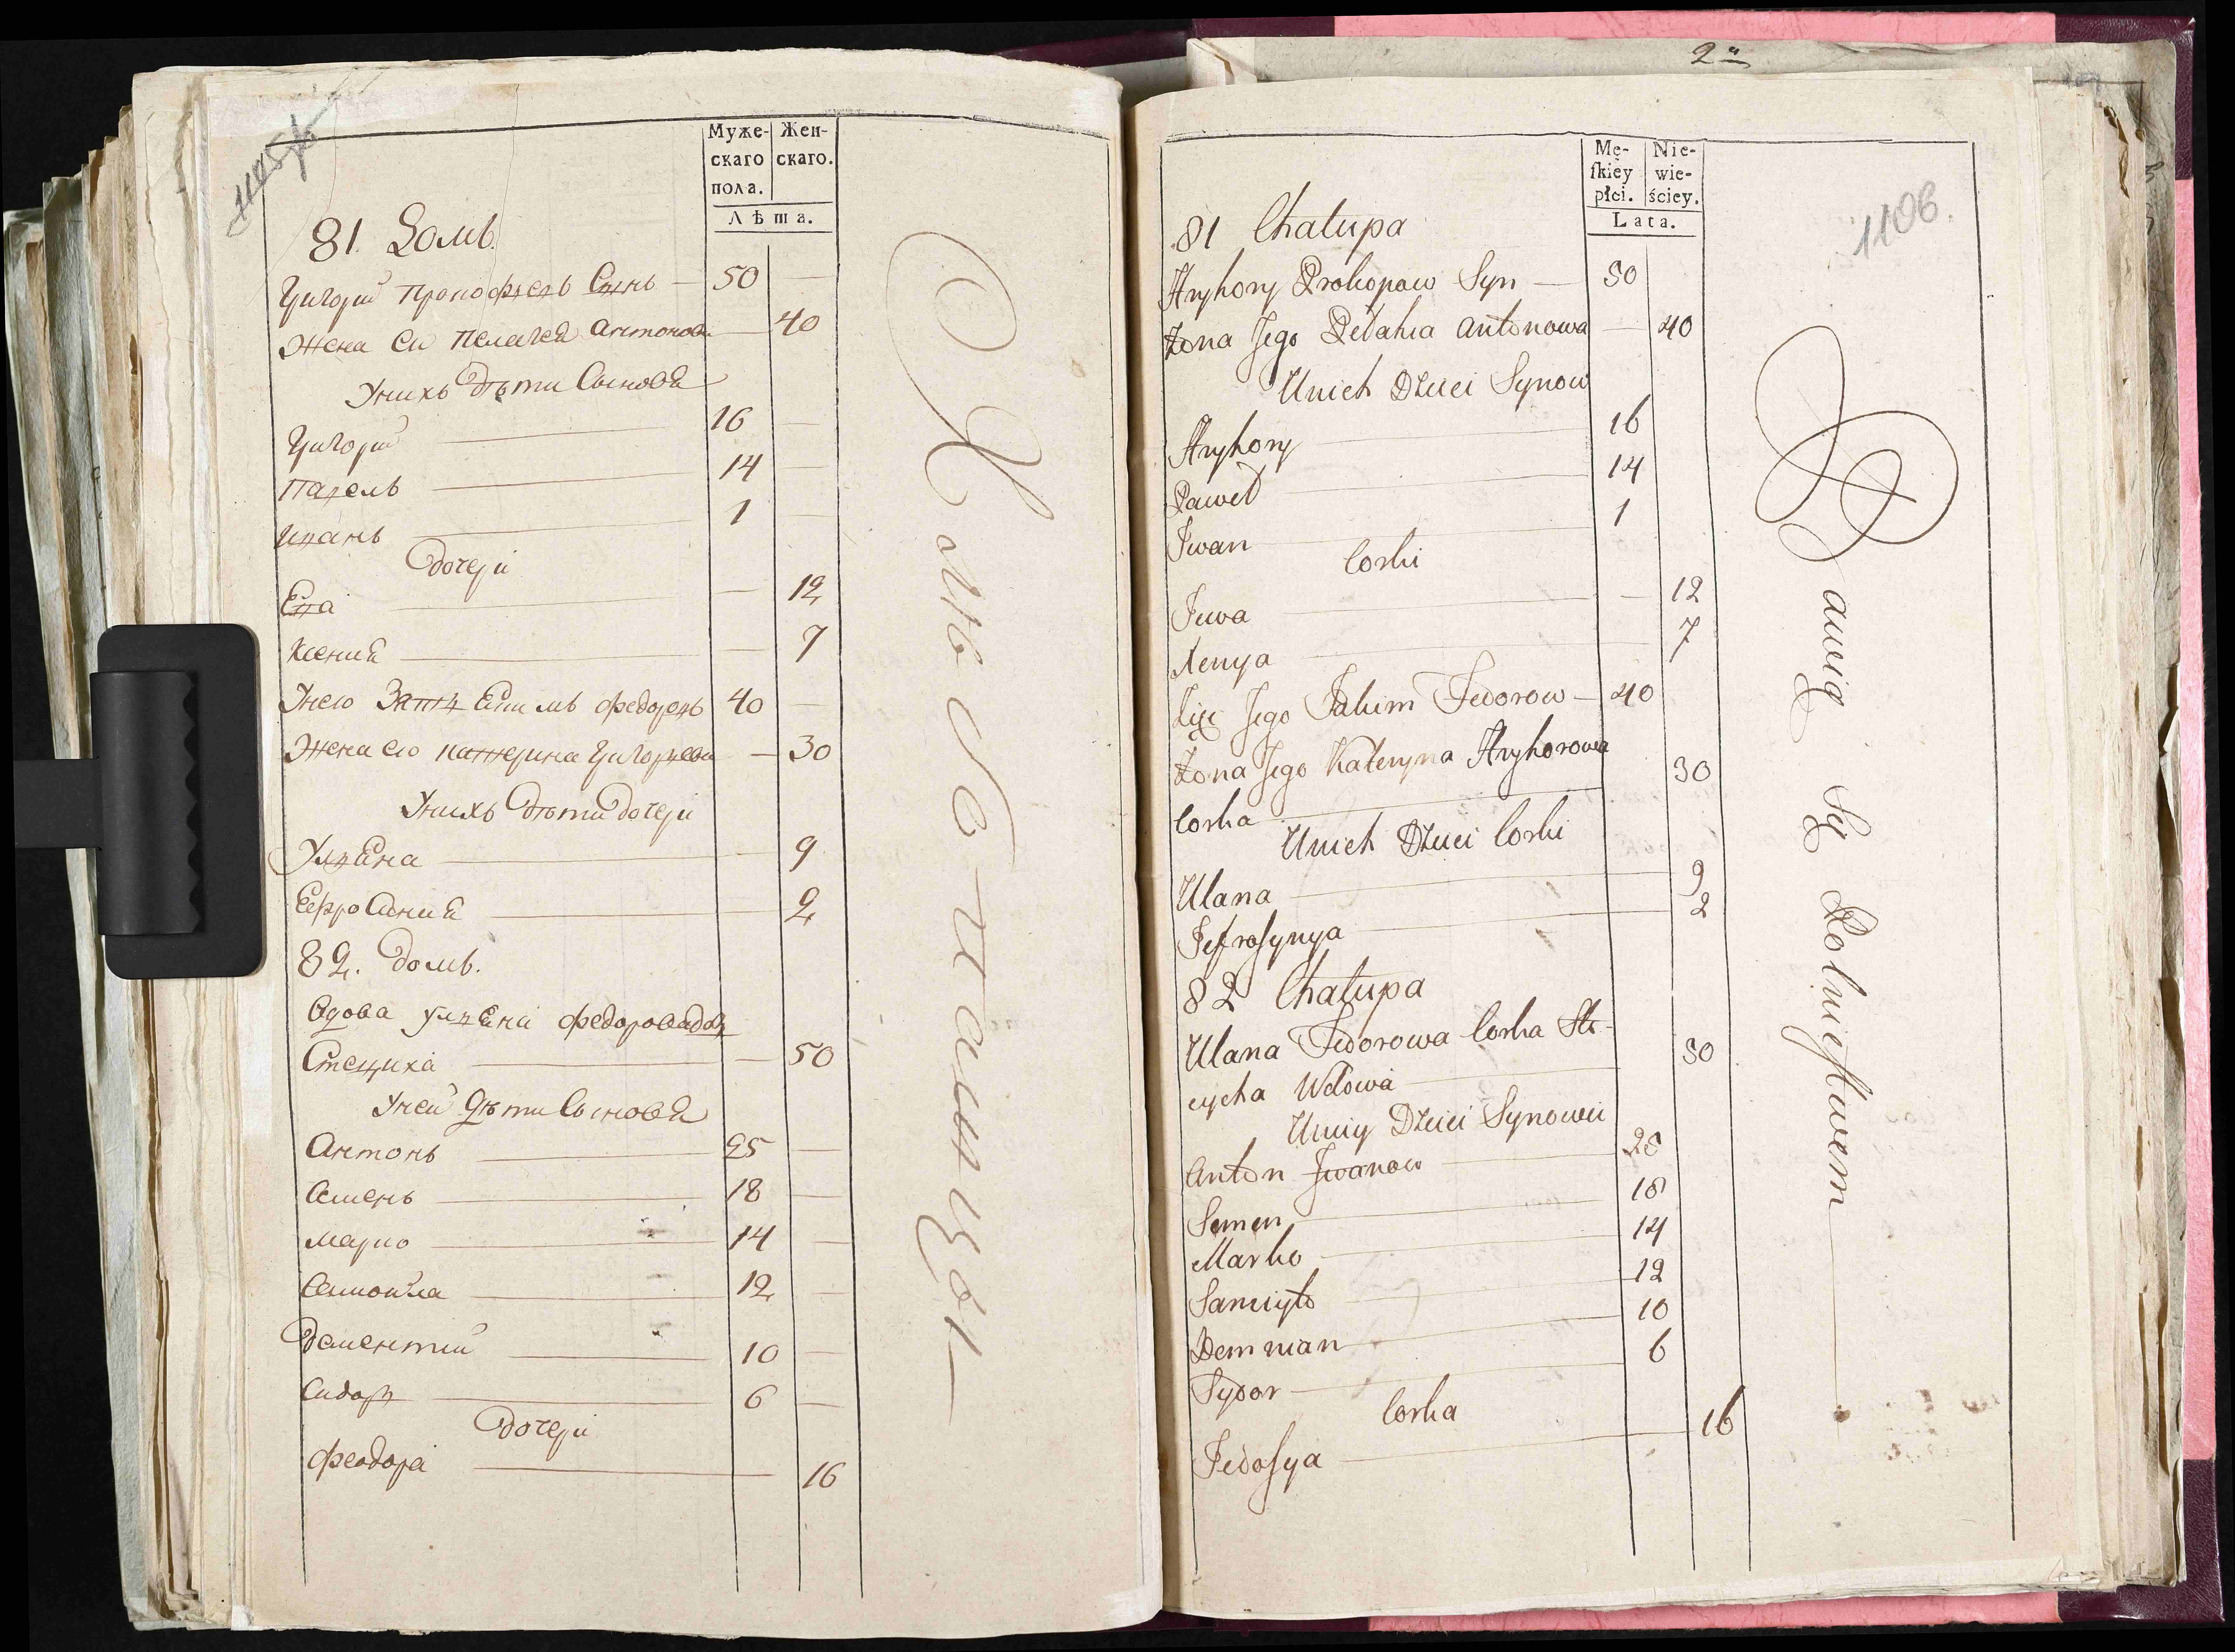 1105/б
Муже-
скаго
пола.
Жен-
скаго.
Лѣта.
81. Домъ.
Григорій Прокофьевъ Сынъ — 50 —
Жена Ею Пелагея Антонова — 40
Унихъ Дѣти Сыновья
Григорій — 16 —
Павелъ — 14 —
Иванъ — 1 —
Дочери
Ева — 12
Ксенія — 7
Унею Зять Ефимъ Федоровъ 40 —
Жена Ею Катерина Григорьева — 30
Унихъ Дѣти Дочери
Ульяна — 9
Ефросинія — 2
82. Домъ.
Вдова Ульяна Федорова дочь
Стециха — 50
Уней Дѣти Сыновья
Антонъ — 25 —
Семенъ — 18 —
Марко — 14 —
Самойла — 12 —
Дементій — 10 —
Сидоръ — 6 —
Дочери
Феодора — 16
Хлѣбопашцы
2
1106.
Mę-
ſkiéy
płci.
Nie-
wie-
ściey.
Lata.
81 Chałupa
Hryhory Prokopow Syn — 50
Żona Jego Pełahia Antonowa — 40
Unich Dzieci Synow
Hryhory — 16
Paweł — 14
Jwan — 1
Corki
Jewa — 12
Xenya — 7
Zięć Jego Jakim Fedorow — 40
Żona Jego Kateryna Hryhorowa 30
Corka
Unich Dzieci Corki
Ulana — 9
Jefroſynya — 2
82 Chałupa
Ulana Fedorowa Corka Ste-
cycha Wdowa — 50
Uniey Dzieci Synowie
Anton Jwanow — 25
Semen — 18
Marko — 14
Samuyło — 12
Demnian — 10
Sydor — 6
Corka
Fedoſya — 16
Bawią Się Rolnicſtwem